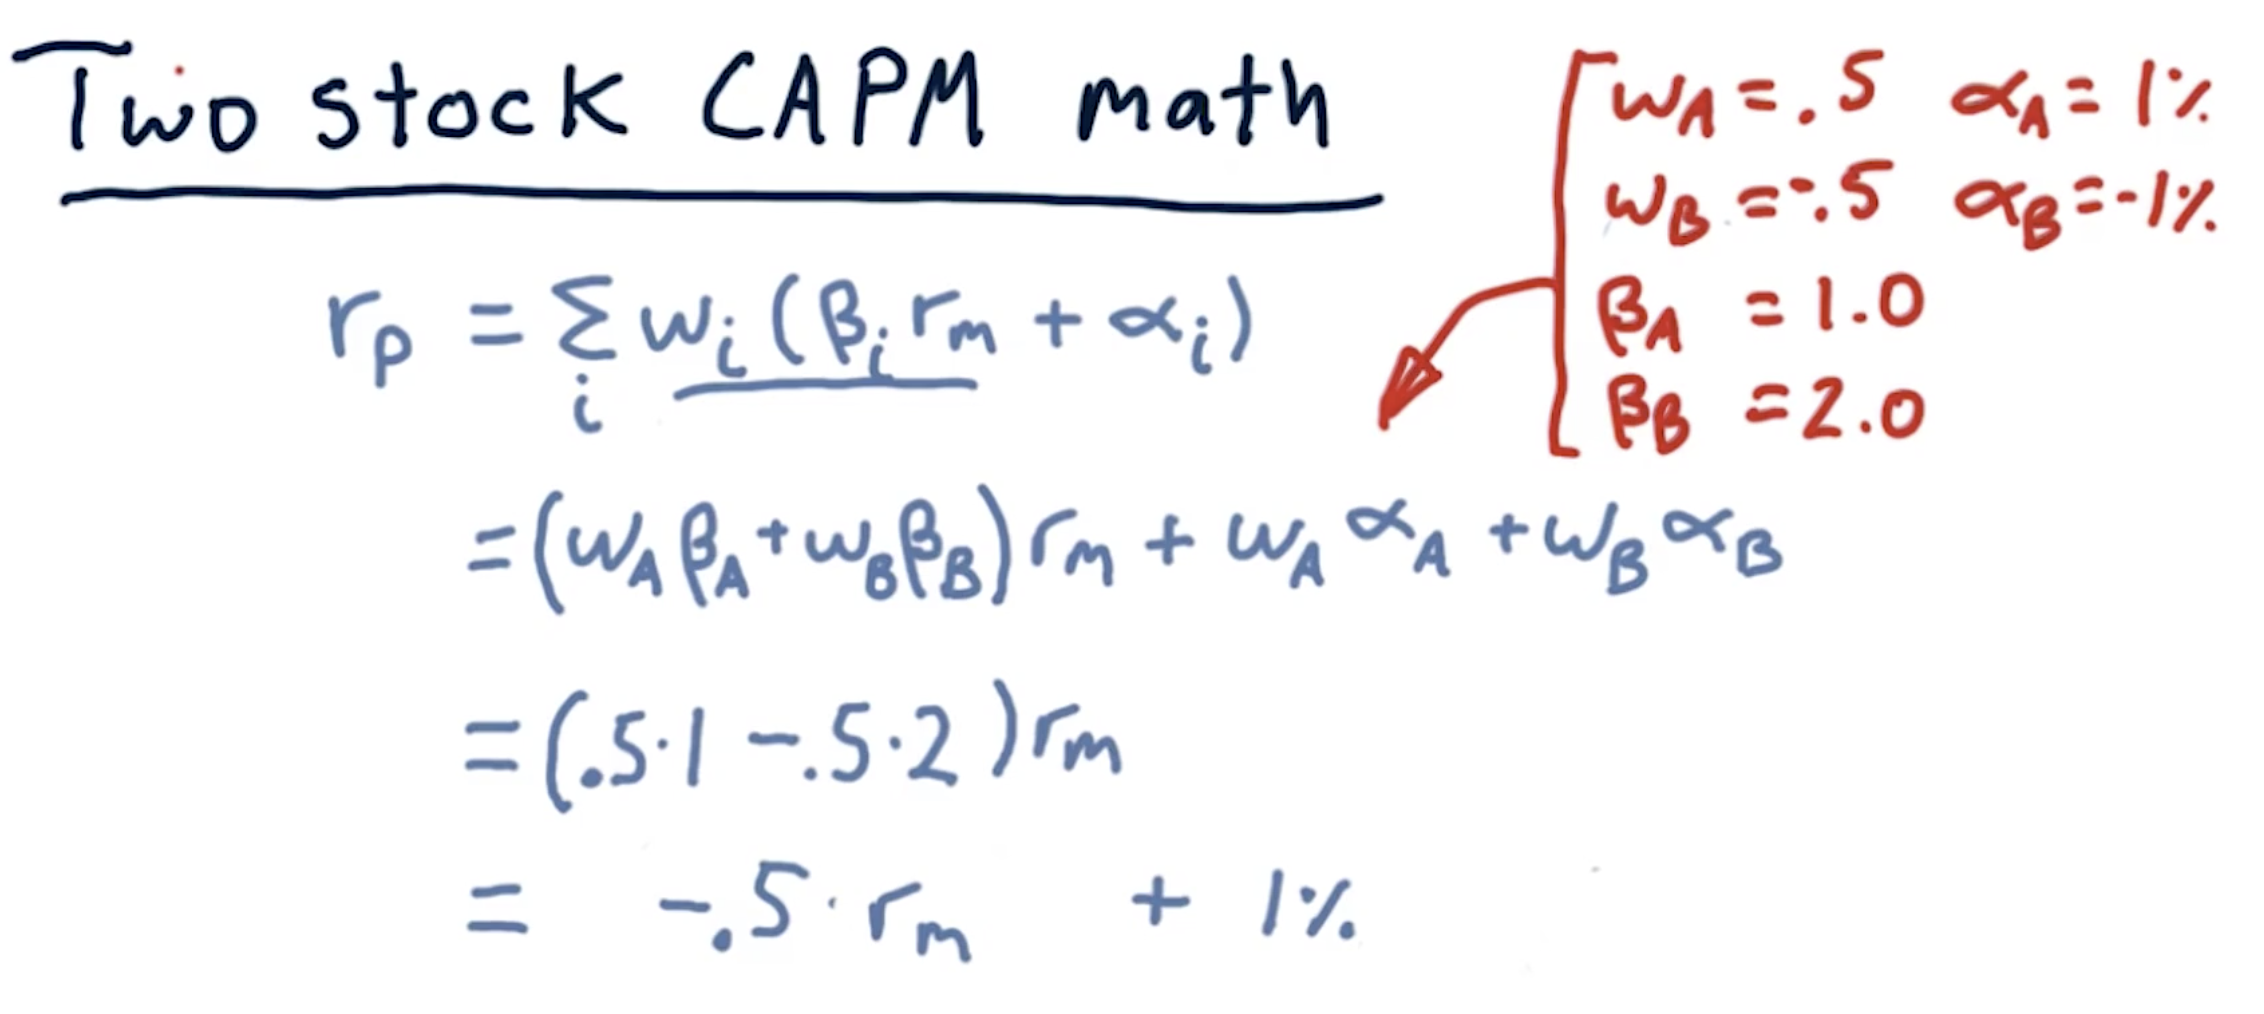 Two stock CAPM math
wA = .5 αA = 1%
wB = -.5 αB = -1%
βA = 1.0
βB = 2.0
rp = Σi wi (βi rm + αi)
= (wA βA + wB βB) rm + wA αA + wB αB
= (.5·1 - .5·2) rm
= -.5 · rm + 1%